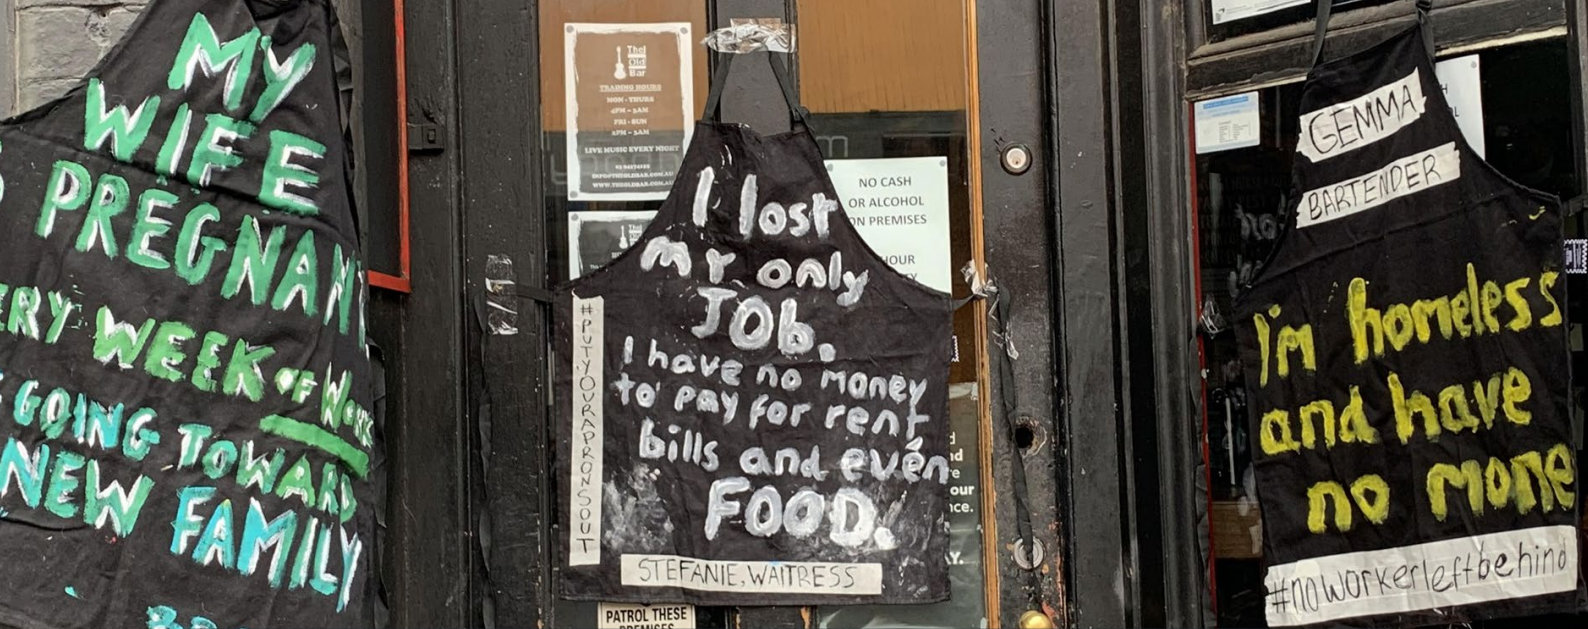 MY
WIFE
PREGNANT
WEEK OF WORK
GOING TOWARD
NEW FAMILY
The
Old
Bar
TRADING HOURS
MON - THURS
4PM - 3AM
FRI - SUN
2PM - 3AM
LIVE MUSIC EVERY NIGHT
INFO@THEOLDBAR.COM.AU
WWW.THEOLDBAR.COM.AU
NO CASH
OR ALCOHOL
ON PREMISES
HOUR
I lost
my only
JOb.
I have no money
to pay for rent
bills and even
FOOD.
#PUTYOURAPRONSOUT
STEFANIE, WAITRESS
PATROL THESE
PREMISES
GEMMA
BARTENDER
I'm homeless
and have
no mone
#noworkerleftbehind